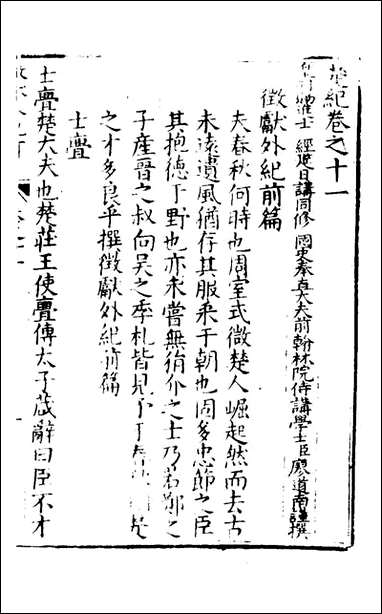 楚紀卷之十一
經筵日講同修國史奉直大夫前翰林院侍講學士臣廖道南謹撰
徵獻外紀前篇
夫春秋何時也周室式微楚人崛起然而去古
未遠遺風猶存其服釆于朝也固多忠節之臣
其抱德于野也亦未嘗無狷介之士乃若鄭之
子產晉之叔向吳之季札皆見
之才多良乎撰徵獻外紀前篇
士亹
士亹楚大夫也楚莊王使亹傅太子葴辭曰臣不才